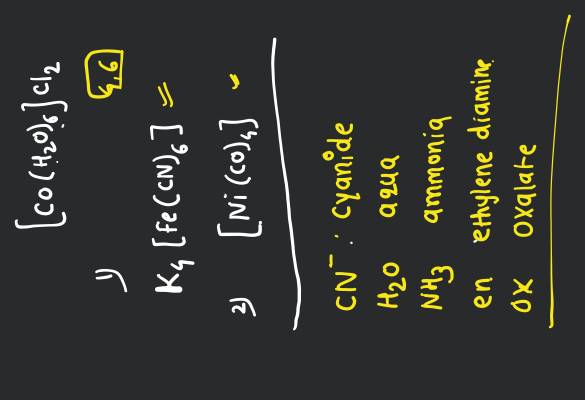 [Co(H₂O)₆]Cl₂
4,6
1)
K₄[Fe(CN)₆] =
2) [Ni(CO)₄]
CN⁻ : cyanide
H₂O aqua
NH₃ ammonia
en ethylene diamine
ox oxalate